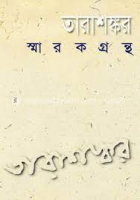 তারাশঙ্কর
স্মারকগ্রন্থ
তারাশঙ্কর